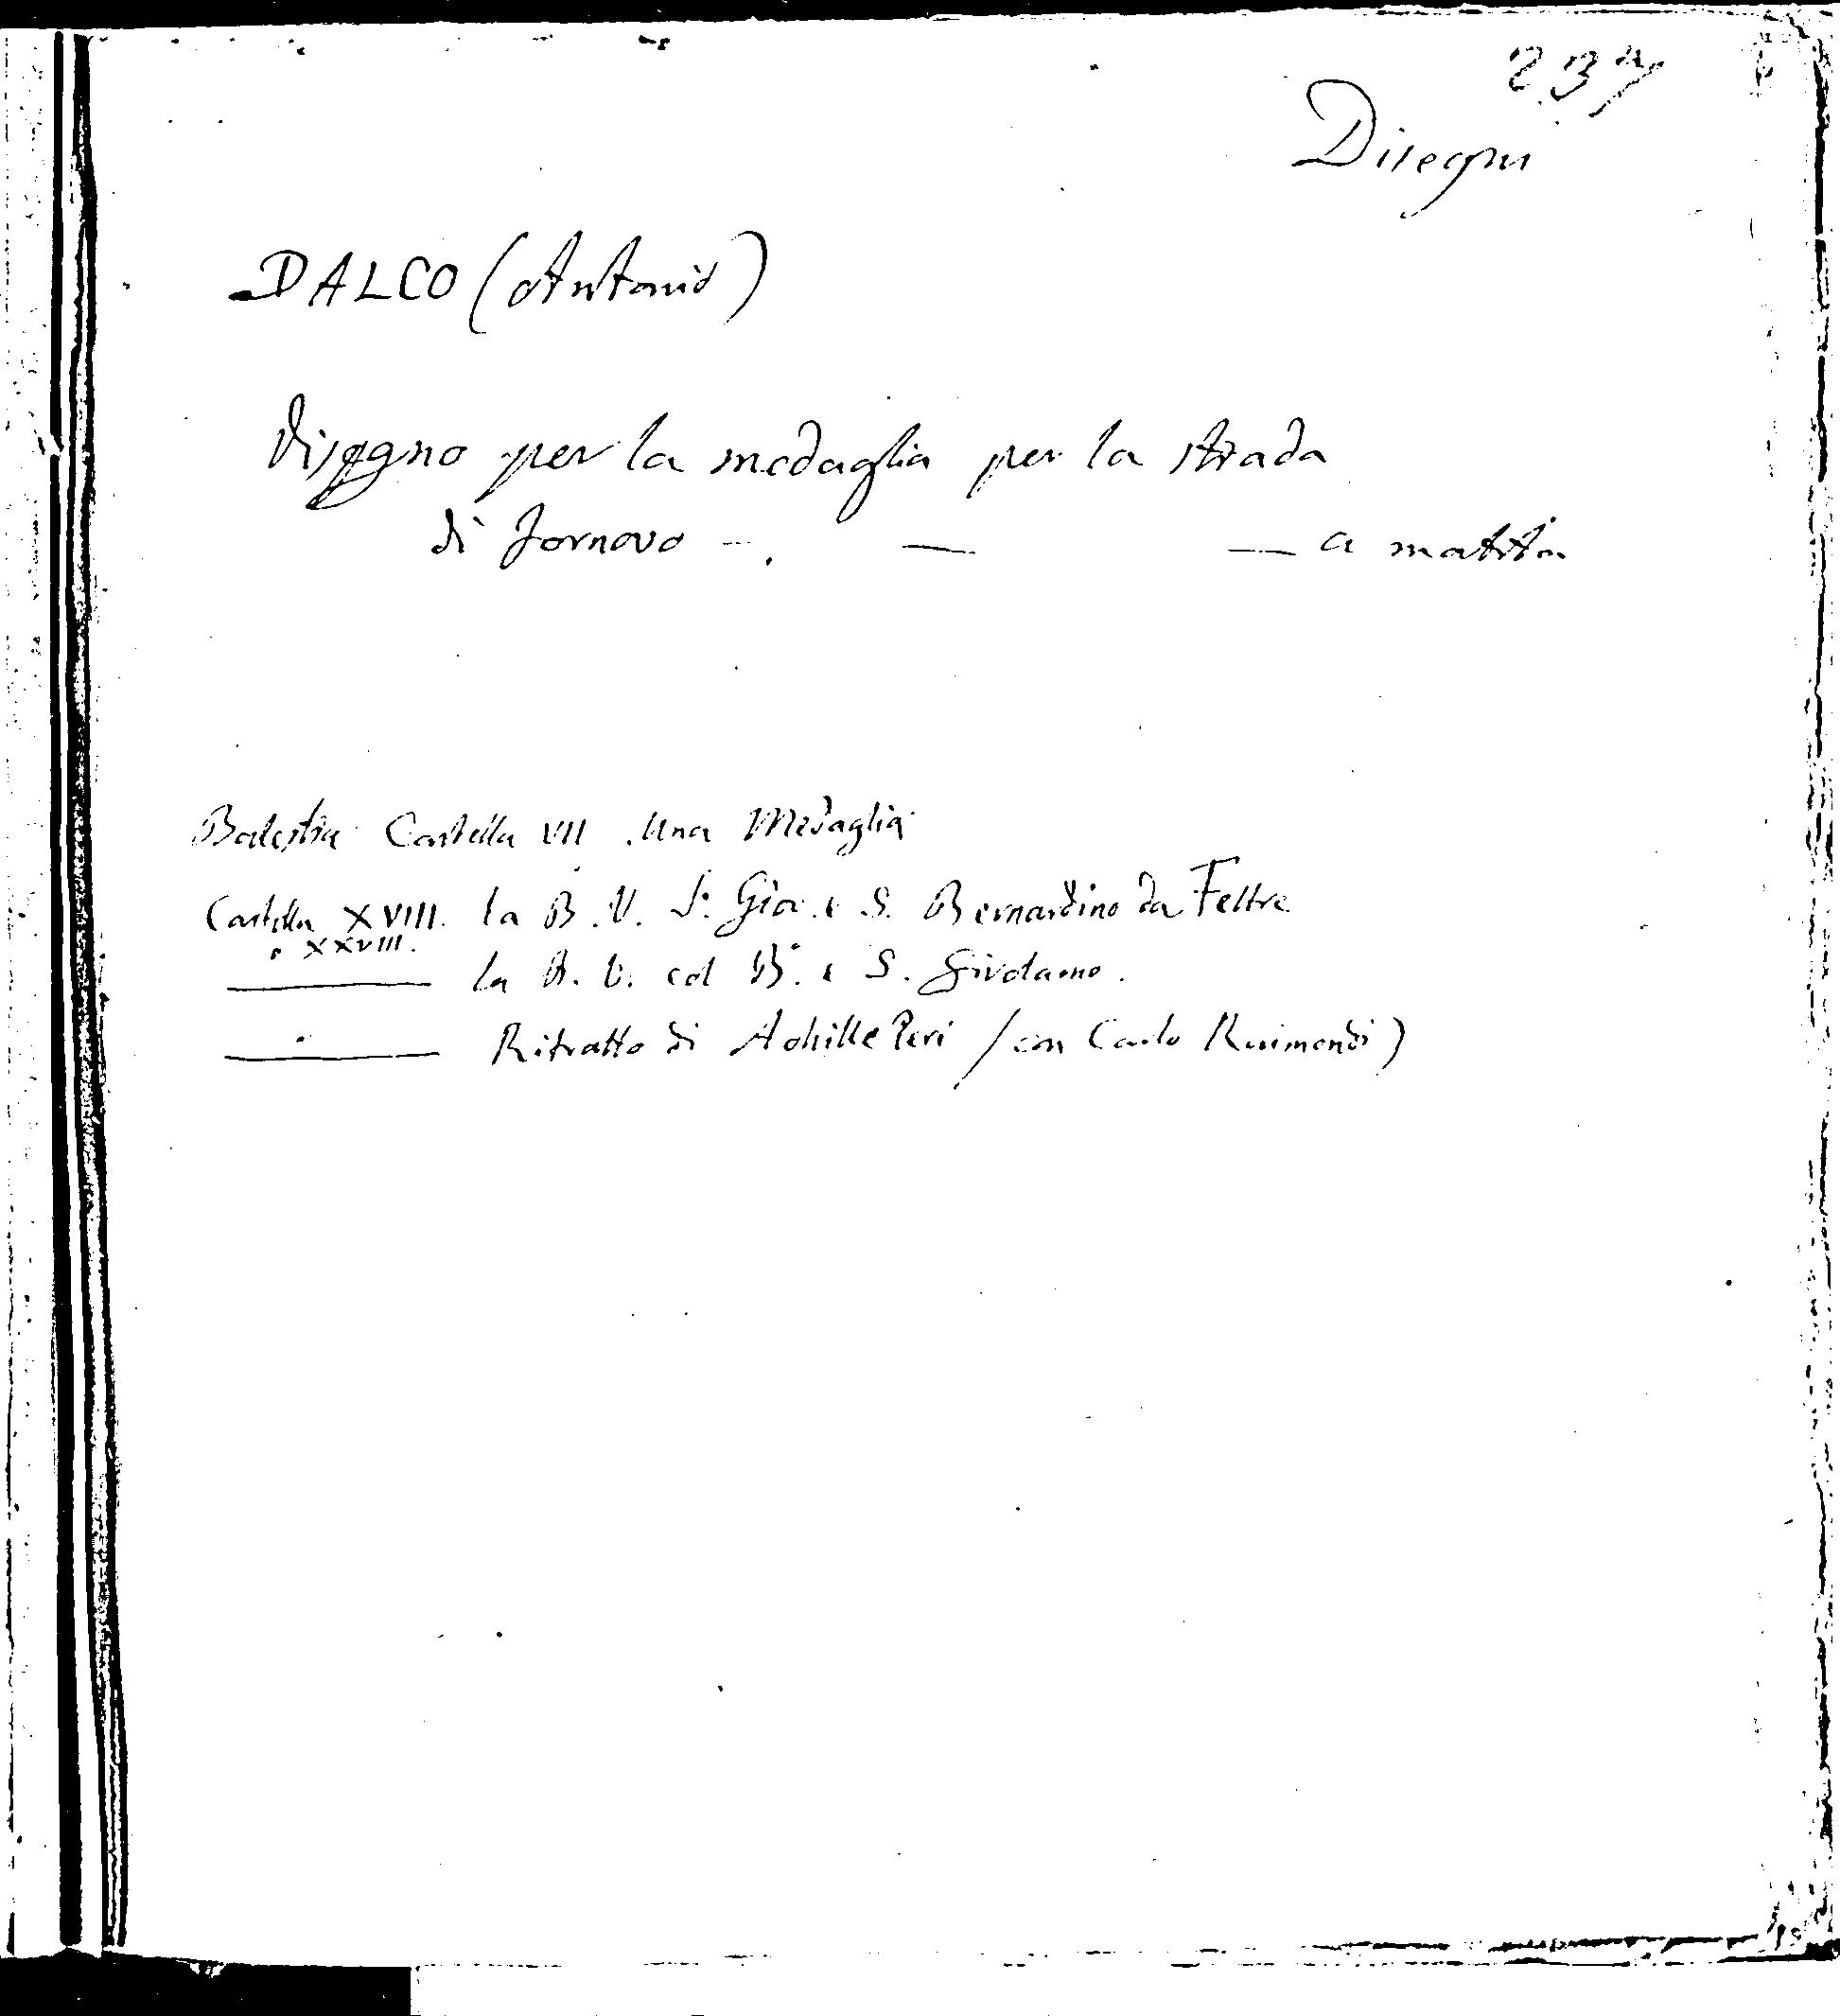 237
Disegni
DALCO (Antonio)
Disegno per la medaglia per la strada
di Fornovo — . — — a matita
Balestra Cartella VII . Una Medaglia
Cartella XVIII. la B. V. S. Gio. e S. Bernardino da Feltre
" XXVIII.
——— la B. V. col B. e S. Girolamo.
——— Ritratto di Achille Peri (con Carlo Raimondi)